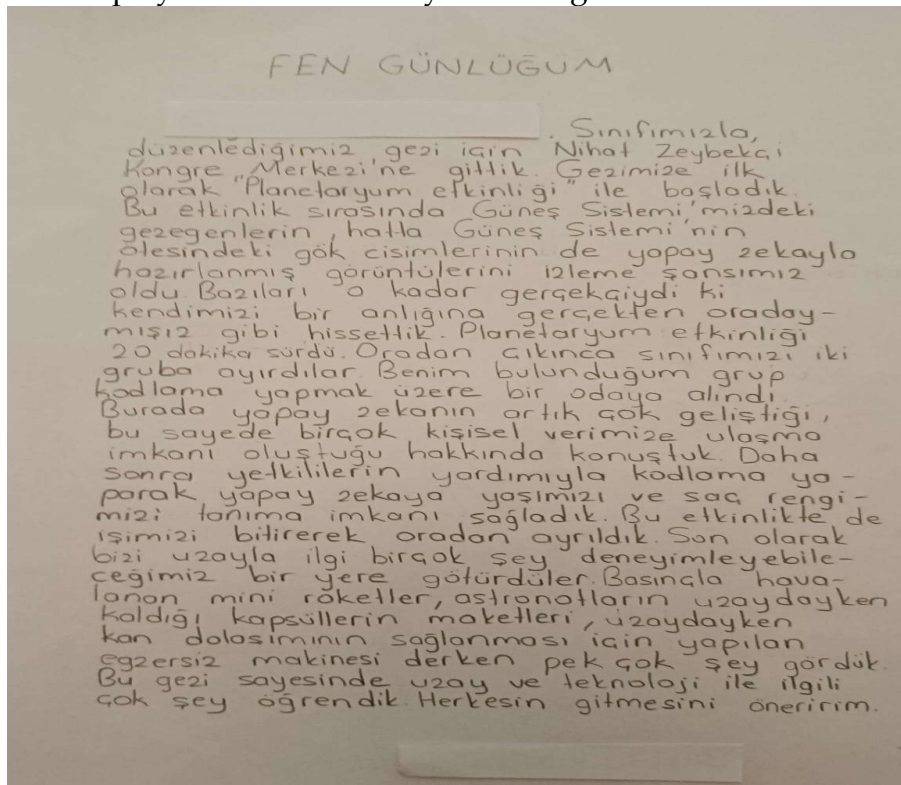 FEN GÜNLÜĞÜM
. Sınıfımızla,
düzenlediğimiz gezi için Nihat Zeybekçi
Kongre Merkezi'ne gittik. Gezimize ilk
olarak "Planetaryum etkinliği" ile başladık.
Bu etkinlik sırasında Güneş Sistemi'mizdeki
gezegenlerin, hatta Güneş Sistemi'nin
ötesindeki gök cisimlerinin de yapay zekayla
hazırlanmış görüntülerini izleme şansımız
oldu. Bazıları o kadar gerçekçiydi ki
kendimizi bir anlığına gerçekten oraday-
mışız gibi hissettik. Planetaryum etkinliği
20 dakika sürdü. Oradan çıkınca sınıfımızı iki
gruba ayırdılar. Benim bulunduğum grup
kodlama yapmak üzere bir odaya alındı.
Burada yapay zekanın artık çok geliştiği,
bu sayede birçok kişisel verimize ulaşma
imkanı oluştuğu hakkında konuştuk. Daha
sonra yetkililerin yardımıyla kodlama ya-
parak yapay zekaya yaşımızı ve saç rengi-
mizi tanıma imkanı sağladık. Bu etkinlikte de
işimizi bitirerek oradan ayrıldık. Son olarak
bizi uzayla ilgi birçok şey deneyimleyebile-
ceğimiz bir yere götürdüler. Basınçla hava-
lanan mini roketler, astronotların uzaydayken
kaldığı kapsüllerin maketleri, uzaydayken
kan dolaşımının sağlanması için yapılan
egzersiz makinesi derken pek çok şey gördük.
Bu gezi sayesinde uzay ve teknoloji ile ilgili
çok şey öğrendik. Herkesin gitmesini öneririm.